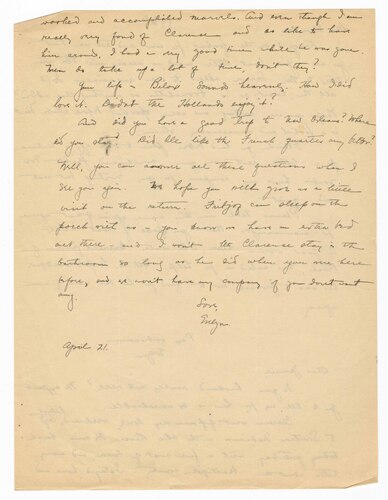 worked and accomplished marvels. And even though I am
really very fond of Clarence and do like to have
him around, I had a very good time while he was gone.
Men do take up a lot of time, don't they?
Your life in Biloxi sounds heavenly. How I'd
love it. Didn't the Hollands enjoy it?
And did you have a good trip to New Orleans? Where
did you stay? Did like the French quarter any better?
Well, you can answer all these questions when I
see you again. We hope you will give us a little
visit on the return. can sleep on the
porch with us - you know we have an extra bed
out there - and I won't let Clarence stay in the
bathroom so long as he did when you were here
before, and we won't have any company if you don't want
any.
Love,
Evelyn.
April 21.